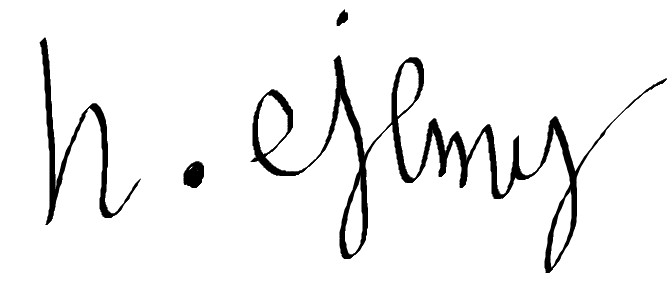 h. ejlmy